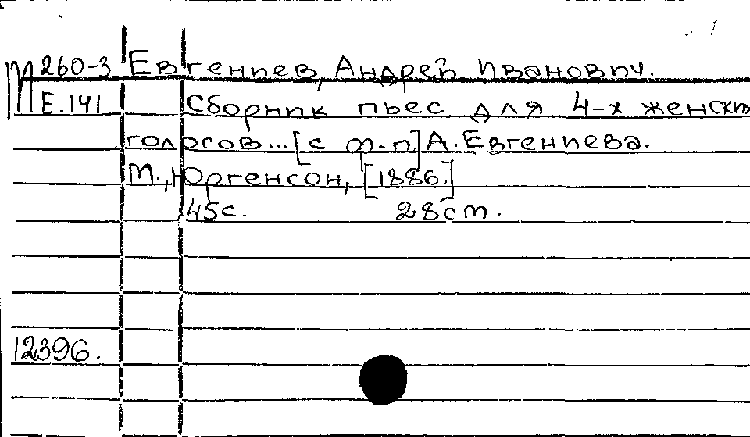 М 260-3 Евгениев, Андрей Иванович.
Е.141 Сборник пьес для 4-х женских
голосов... [с ф.-п.] А. Евгениева.
М., Юргенсон, [1886.]
45с. 28см.
12396.